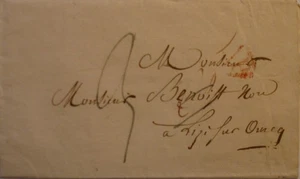 Monsieur
Monsieur Benoist
à Lizi sur Ourcq